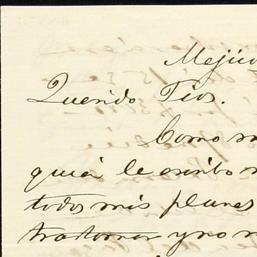 Mejico
Querido Tios.
Como
quia le escribo
todos mis planes
trastornar y no